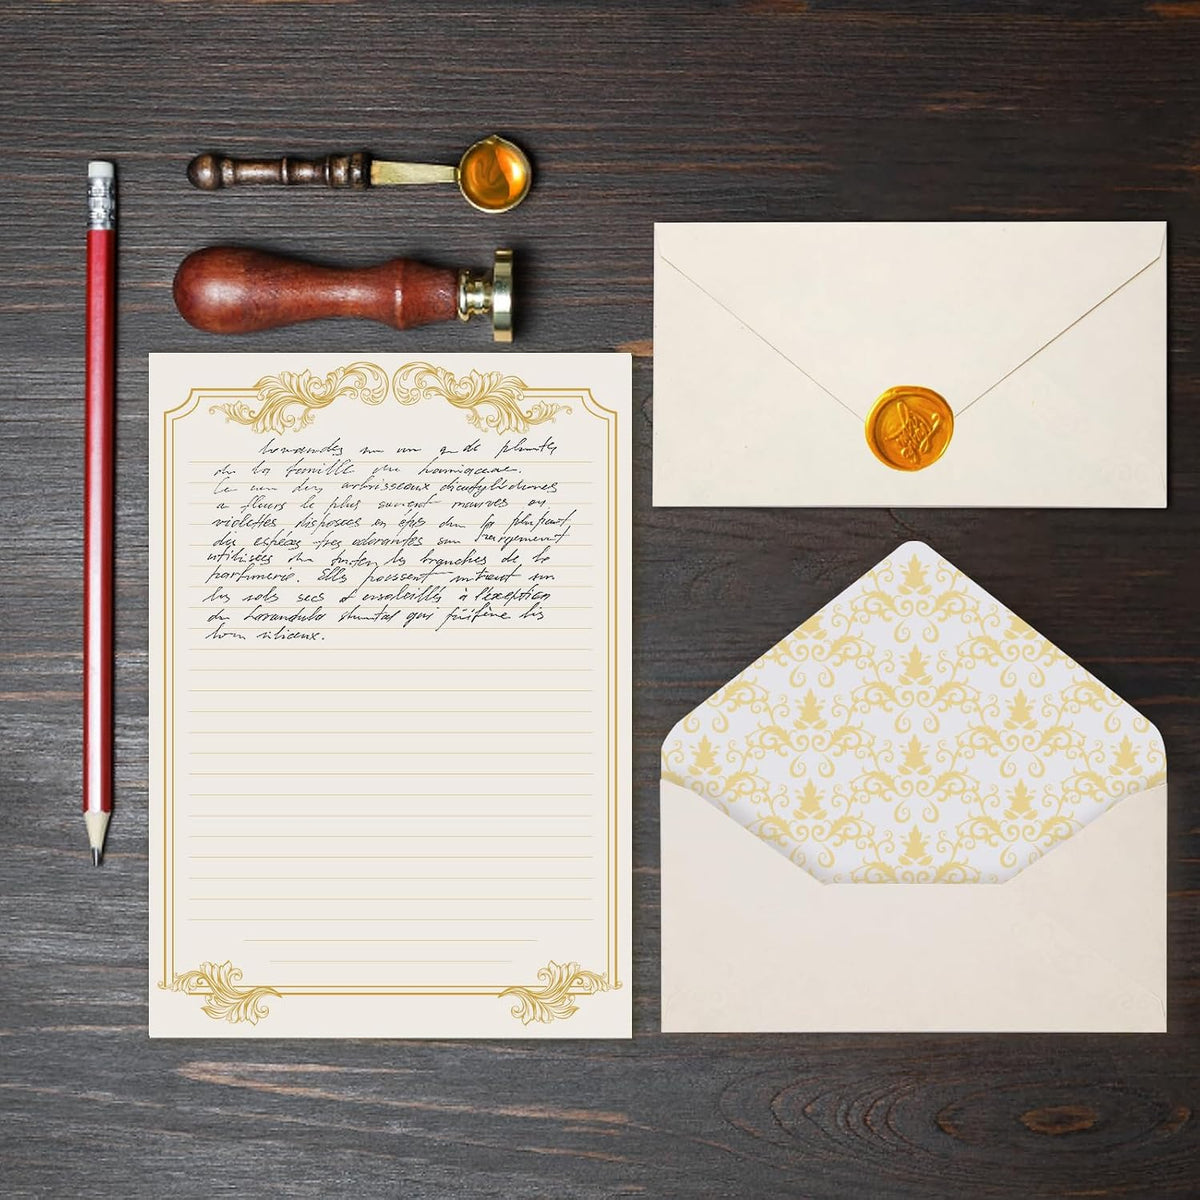 Lavandes un un q de plantes
de la famille du Lamiaceae.
Ce un des arbrisseaux dicotylédones
a fleurs le plus souvent mauves ou
violettes disposées en épis du la plupart
des espèces tres odorantes son largement
utilisées du toutes les branches de la
parfumerie. Elles poussent surtout sur
les sols secs et ensoleillés à l'exception
du Lavandula qui préfère les
siliceux.